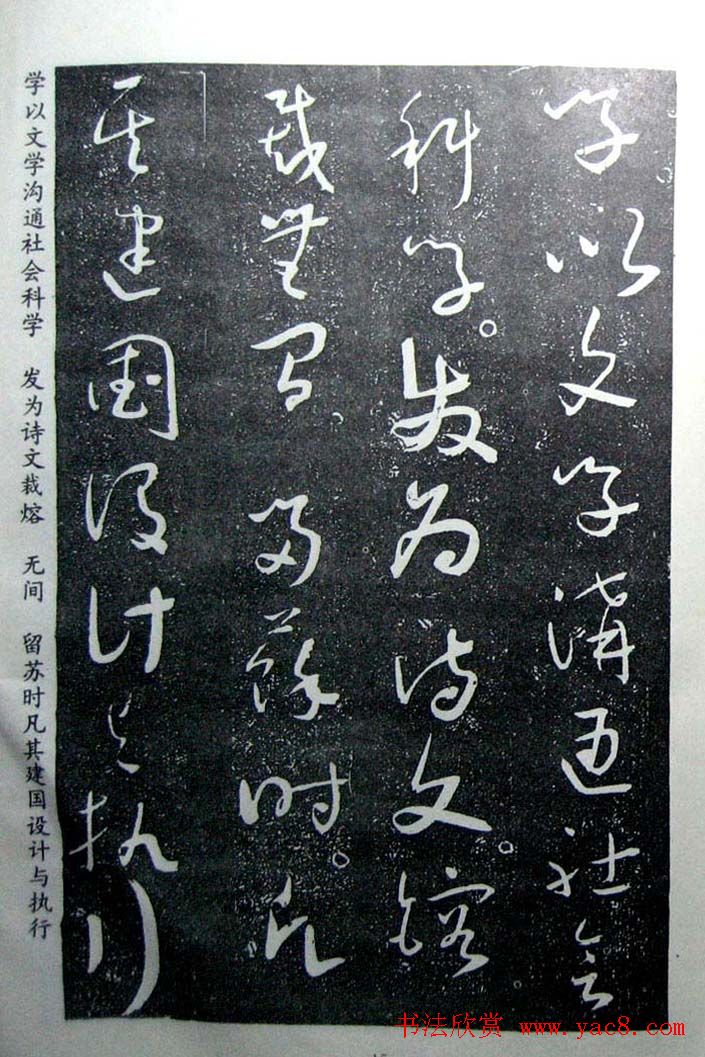 学以文学溝通社会
科学。发为诗文。鎔
裁無間 留蘇時。凡
其建國設計与执行
学以文学沟通社会科学 发为诗文裁熔 无间 留苏时凡其建国设计与执行
书法欣赏 www.yac8.com